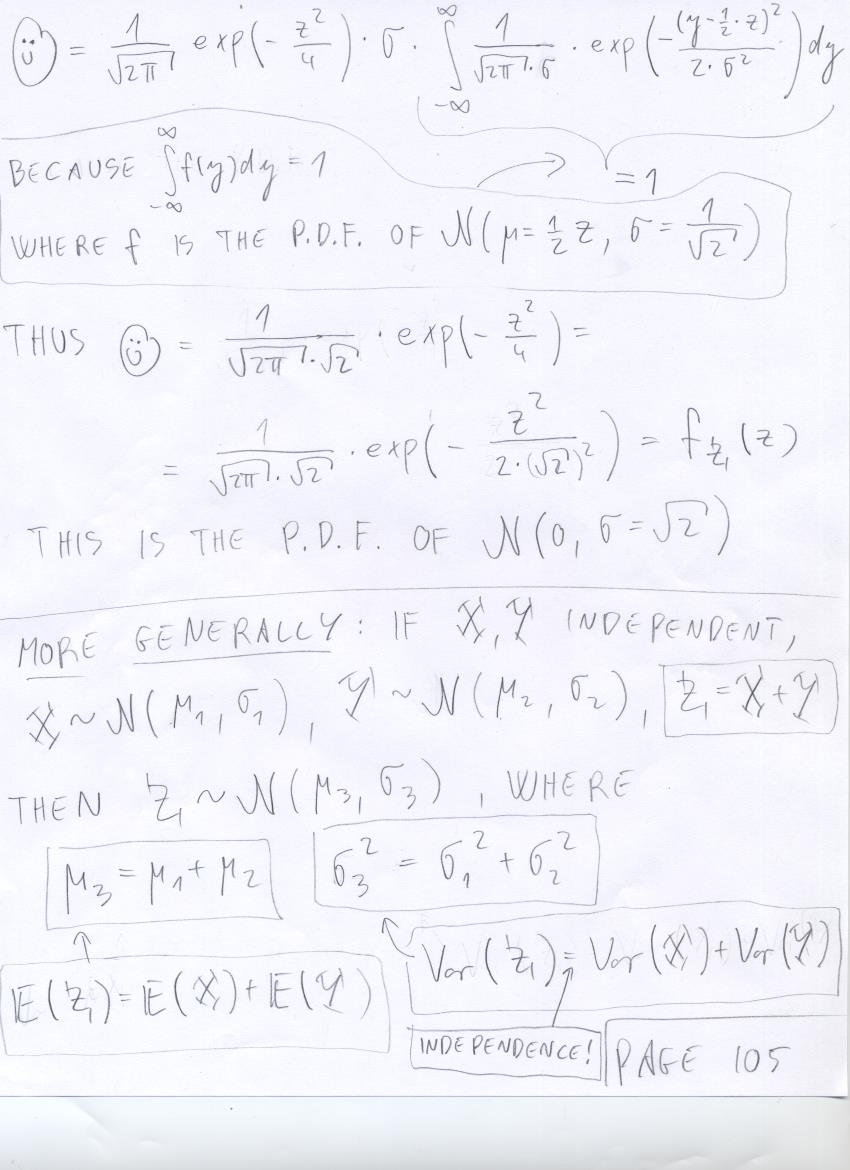 ☺ = 1/√2π exp(- z²/4) · σ · ∫_{-∞}^{∞} 1/(√2π · σ) · exp(- (y - ½ · z)²/(2 · σ²)) dy
BECAUSE ∫_{-∞}^{∞} f(y)dy = 1 → = 1
WHERE f IS THE P.D.F. OF N(μ = ½ z, σ = 1/√2)
THUS ☺ = 1/(√2π · √2) · exp(- z²/4) =
= 1/(√2π · √2) · exp(- z²/(2 · (√2)²)) = f_Z(z)
THIS IS THE P.D.F. OF N(0, σ = √2)
MORE GENERALLY: IF X, Y INDEPENDENT,
X ~ N(μ₁, σ₁), Y ~ N(μ₂, σ₂), Z = X + Y
THEN Z ~ N(μ₃, σ₃), WHERE
μ₃ = μ₁ + μ₂ σ₃² = σ₁² + σ₂²
E(Z) = E(X) + E(Y) Var(Z) = Var(X) + Var(Y)
INDEPENDENCE! PAGE 105